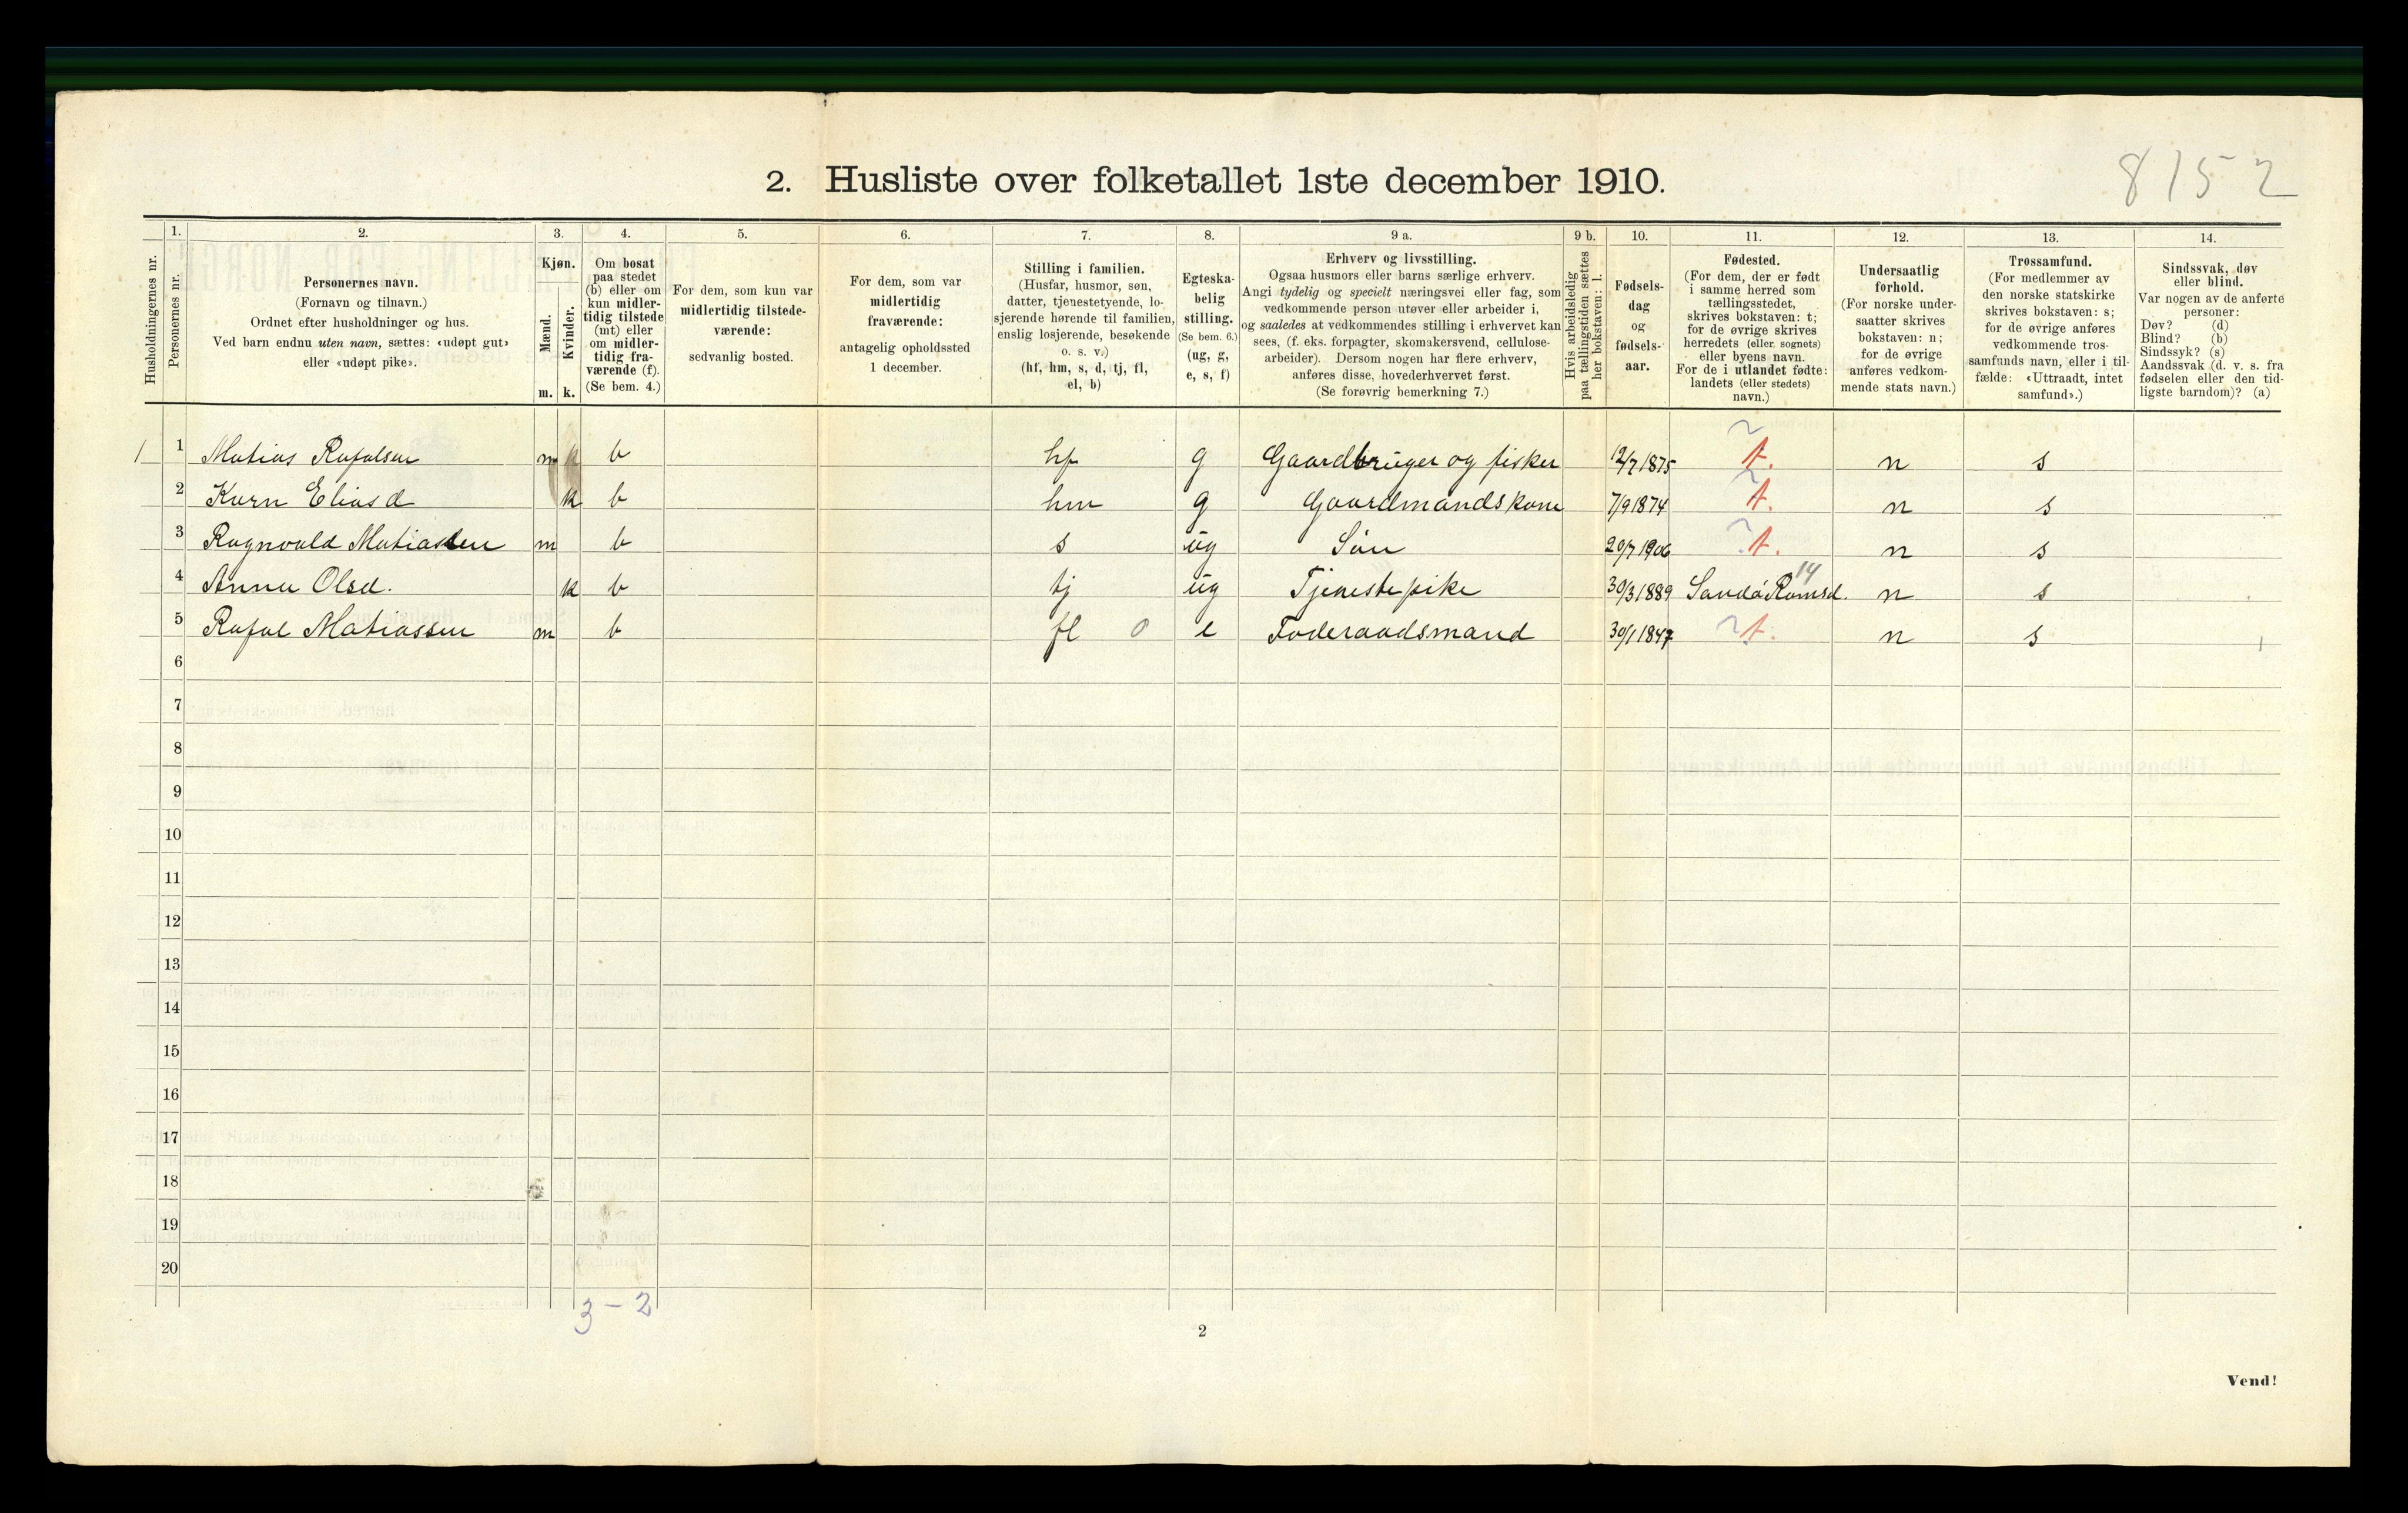 8152
2. Husliste over folketallet 1ste december 1910.
1. 2. 3. 4. 5. 6. 7. 8. 9 a. 9 b. 10. 11. 12. 13. 14.
Husholdningernes nr.
Personernes nr.
Personernes navn.
(Fornavn og tilnavn.)
Ordnet efter husholdninger og hus.
Ved barn endnu uten navn, sættes: «udøpt gut»
eller «udøpt pike».
Kjøn.
Mænd.
Kvinder.
m. k.
Om bosat
paa stedet
(b) eller om
kun midler-
tidig tilstede
(mt) eller
om midler-
tidig fra-
værende (f).
(Se bem. 4.)
For dem, som kun var
midlertidig tilstede-
værende:
sedvanlig bosted.
For dem, som var
midlertidig
fraværende:
antagelig opholdssted
1 december.
Stilling i familien.
(Husfar, husmor, søn,
datter, tjenestetyende, lo-
sjerende hørende til familien,
enslig losjerende, besøkende
o. s. v.)
(hf, hm, s, d, tj, fl,
el, b)
Egteska-
belig
stilling.
(Se bem. 6.)
(ug, g,
e, s, f)
Erhverv og livsstilling.
Ogsaa husmors eller barns særlige erhverv.
Angi tydelig og specielt næringsvei eller fag, som
vedkommende person utøver eller arbeider i,
og saaledes at vedkommendes stilling i erhvervet kan
sees, (f. eks. forpagter, skomakersvend, cellulose-
arbeider). Dersom nogen har flere erhverv,
anføres disse, hovederhvervet først.
(Se forøvrig bemerkning 7.)
Hvis arbeidsledig
paa tællingstiden sættes
her bokstaven: l.
Fødsels-
dag
og
fødsels-
aar.
Fødested.
(For dem, der er født
i samme herred som
tællingsstedet,
skrives bokstaven: t;
for de øvrige skrives
herredets (eller sognets)
eller byens navn.
For de i utlandet fødte:
landets (eller stedets)
navn.)
Undersaatlig
forhold.
(For norske under-
saatter skrives
bokstaven: n;
for de øvrige
anføres vedkom-
mende stats navn.)
Trossamfund.
(For medlemmer av
den norske statskirke
skrives bokstaven: s;
for de øvrige anføres
vedkommende tros-
samfunds navn, eller i til-
fælde: «Uttraadt, intet
samfund».)
Sindssvak, døv
eller blind.
Var nogen av de anførte
personer:
Døv? (d)
Blind? (b)
Sindssyk? (s)
Aandssvak (d. v. s. fra
fødselen eller den tid-
ligste barndom)? (a)
1 1 Matias Rafalsen m b hf g Gaardbruger og fisker 12/7 1875 t. n s
2 Karn Eliasd k b hm g Gaardmandskone 7/9 1874 t. n s
3 Ragnvald Matiassen m b s ug Søn 20/7 1906 t. n s
4 Anna Olsd. k b tj ug Tjenestepike 30/3 1889 Sandø Romsd. 14 n s
5 Rafal Matiassen m b fl 0 e Foderaadsmand 30/1 1847 t. n s
6
7
8
9
10
11
12
13
14
15
16
17
18
19
20
3 - 2
2
Vend!